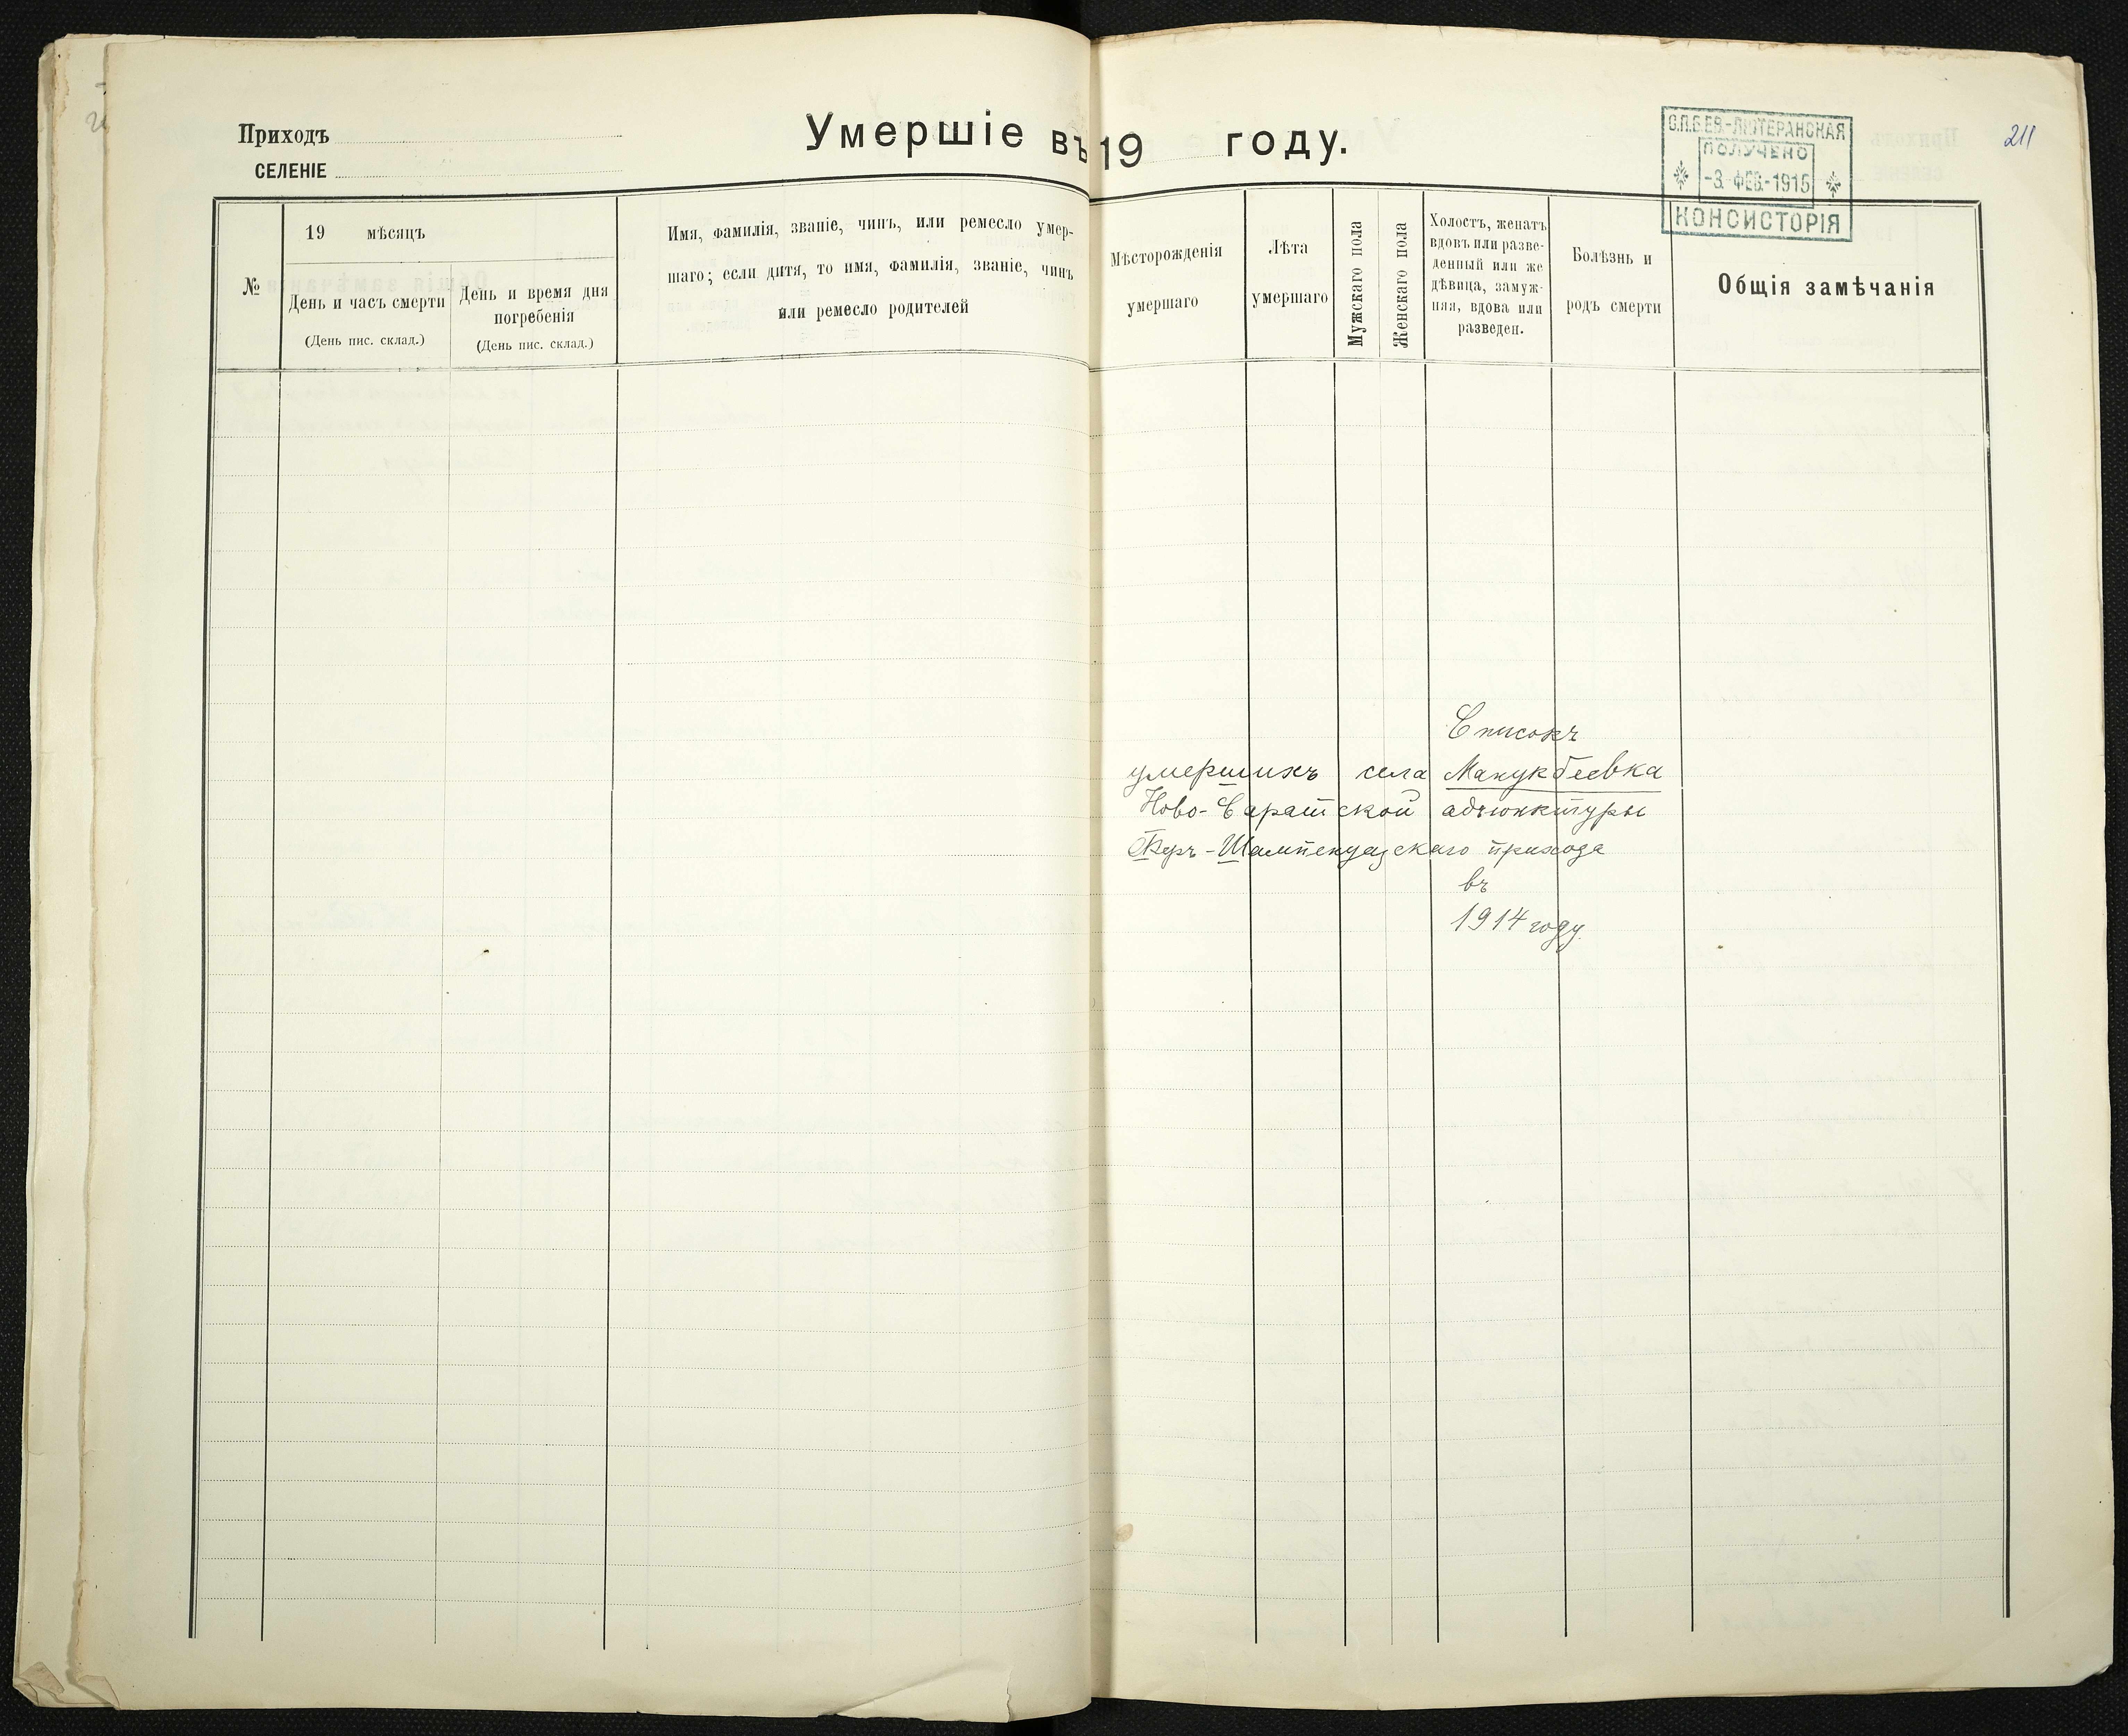 Приходъ
СЕЛЕНІЕ
Умершіе въ 19 году.
С.П.Б.ЕВ.-ЛЮТЕРАНСКАЯ
ПОЛУЧЕНО
-3. ФЕВ.-1915
КОНСИСТОРІЯ
211
№
19 мѣсяцъ
День и часъ смерти
(День пис. склад.)
День и время дня
погребенія
(День пис. склад.)
Имя, фамилія, званіе, чинъ, или ремесло умер-
шаго; если дитя, то имя, фамилія, званіе, чинъ
или ремесло родителей
Мѣсторожденія
умершаго
Лѣта
умершаго
Мужскаго пола
Женскаго пола
Холостъ, женатъ
вдовъ или разве-
денный или же
дѣвица, замуж-
няя, вдова или
разведен.
Болѣзнь и
родъ смерти
Общія замѣчанія
Списокъ
умершихъ села Манукбеевка
Ново-Саратской адъюнктуры
Феръ-Шампенуазскаго прихода
въ
1914 году.